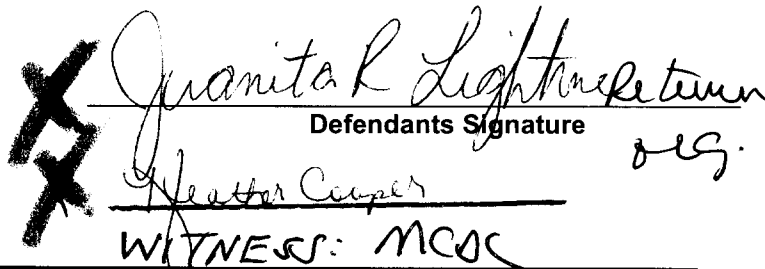 Juanita R Lightne Return
Defendants Signature
orig.
Heather Cooper
WITNESS: MCDC